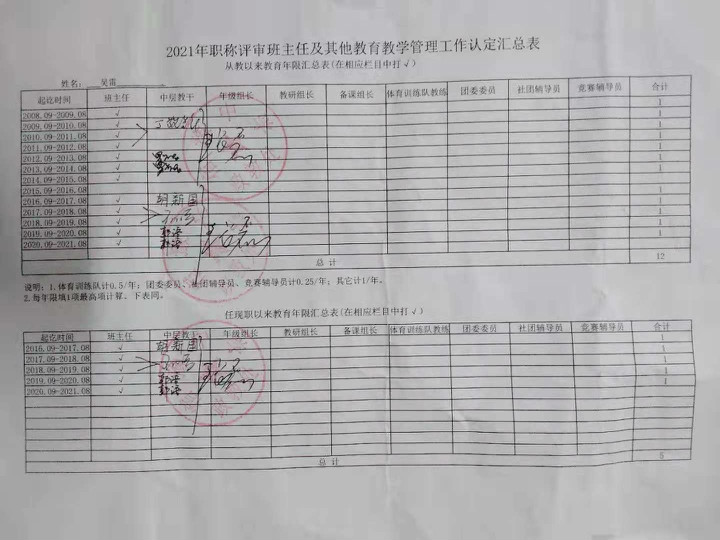 2021年职称评审班主任及其他教育教学管理工作认定汇总表
从教以来教育年限汇总表(在相应栏目中打√)
姓名: 吴雷
起讫时间 班主任 中层教干 年级组长 教研组长 备课组长 体育训练队教练 团委委员 社团辅导员 竞赛辅导员 合计
2008.09-2009.08 √ 1
2009.09-2010.08 √ 1
2010.09-2011.08 √ 1
2011.09-2012.08 √ 1
2012.09-2013.08 √ 1
2013.09-2014.08 √ 1
2014.09-2015.08 √ 1
2015.09-2016.08
2016.09-2017.08 √ 胡新国 1
2017.09-2018.08 √ 1
2018.09-2019.08 √ 1
2019.09-2020.08 √ 1
2020.09-2021.08 √ 1
总 计 12
说明: 1.体育训练队计0.5/年; 团委委员、社团辅导员、竞赛辅导员计0.25/年; 其它计1/年。
2.每年限填1项最高项计算。下表同。
任现职以来教育年限汇总表(在相应栏目中打√)
起讫时间 班主任 中层教干 年级组长 教研组长 备课组长 体育训练队教练 团委委员 社团辅导员 竞赛辅导员 合计
2016.09-2017.08 √ 胡新国 1
2017.09-2018.08 √ 1
2018.09-2019.08 √ 1
2019.09-2020.08 √ 1
2020.09-2021.08 √ 1
总 计 5